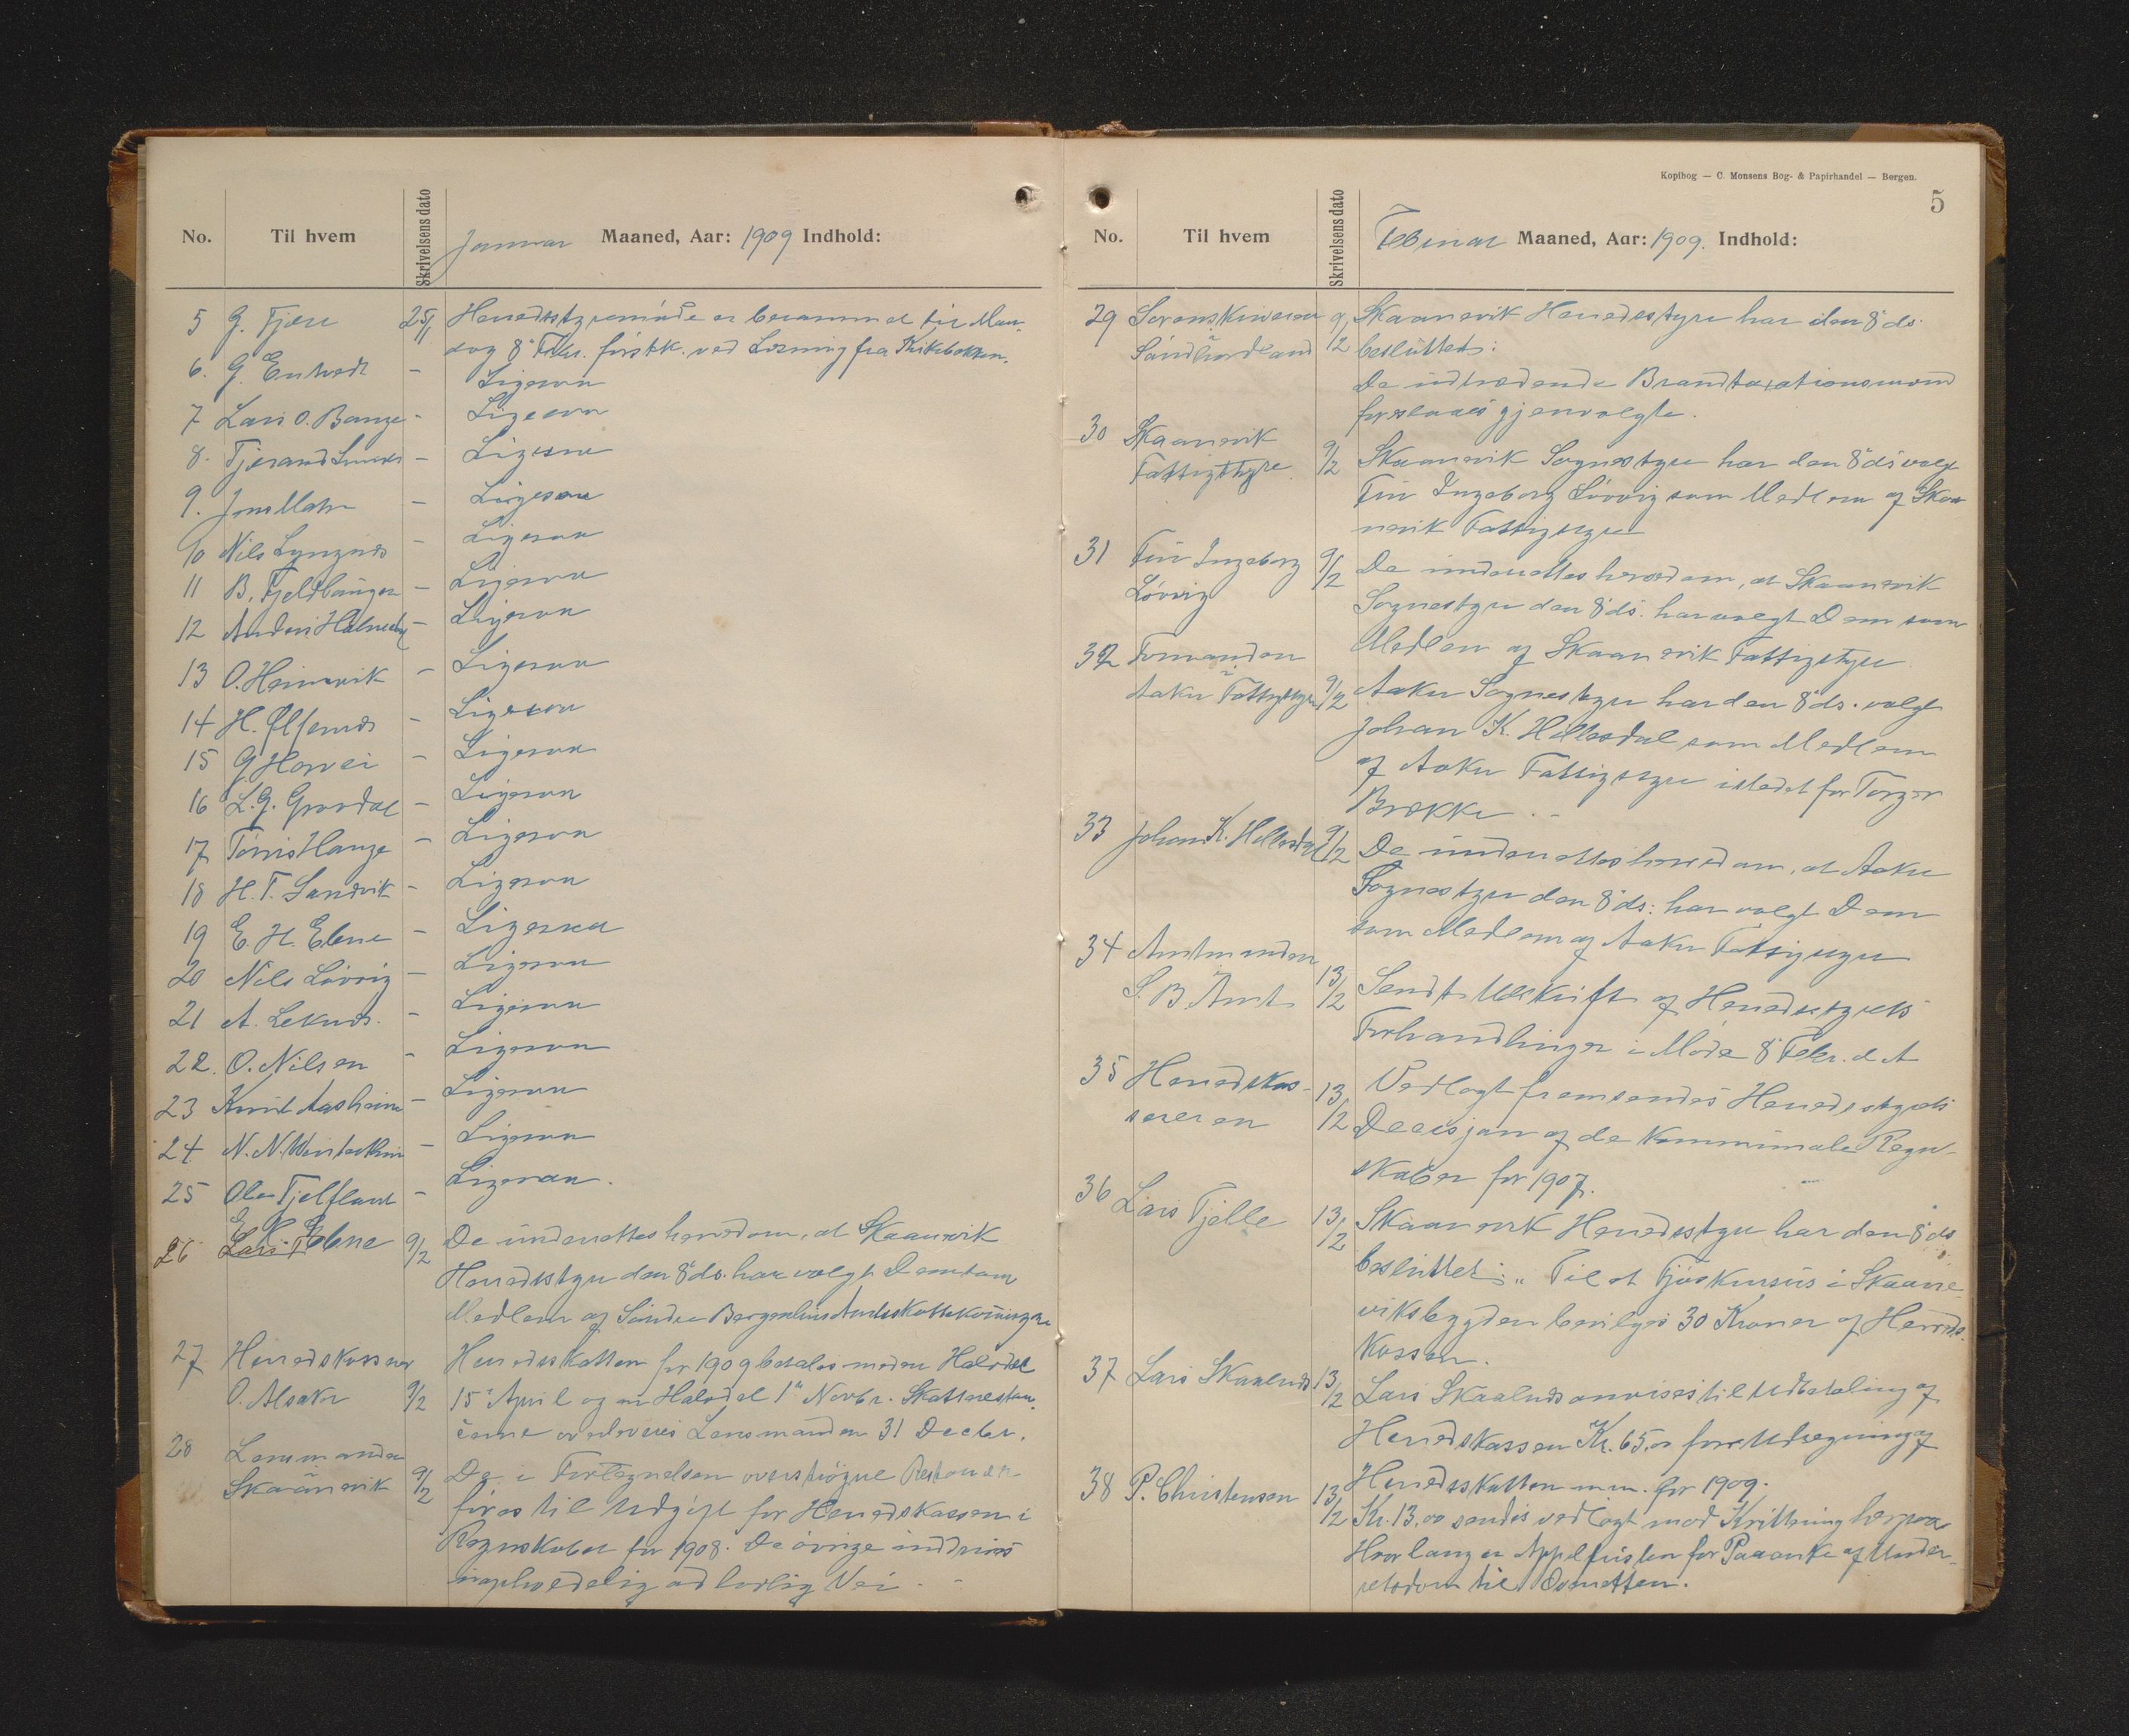 No. Til hvem Skrivelsens dato Januar Maaned, Aar: 1909 Indhold:
5 G. Fjære 25/1 Herredsstyremøde er berammet til Man-
dag 8de Febr. førstk. ved Løsning fra Kirkebakken.
6. G. Enstvedt - Ligesaa
7 Lars O. Bauge - Ligesaa
8. Tjerand - Ligesaa
9. Jens Matre - Ligesaa
10 Nils Lyngnes - Ligesaa
11 B. Fjeldhaugen - Ligesaa
12 Anders - Ligesaa
13 O. Heimvik - Ligesaa
14 H. Ølfernes - Ligesaa
15 G. Horvei - Ligesaa
16 L. G. Grondal - Ligesaa
17 Tørris Hauge - Ligesaa
18 H. T. Sandvik - Ligesaa
19 E. H. Ebne - Ligesaa
20 Nils Løvvig - Ligesaa
21 A. Leknes. - Ligesaa
22. O. Nilsen - Ligesaa
23 Knut Aasheim - Ligesaa
24 N. N. - Ligesaa
25 Ola Fjelland - Ligesaa.
26 E. K. Ebne 9/2 De underrettes herved om, at Skaanevik
Herredsstyre den 8de ds. har valgt Dem som
Medlem af Søndre Bergenhus Amtsskattekommission
27 Herredskasserer Herredsskatten for 1909 betales med en Halvdel
O. Alsaker 9/2 15de April og en Halvdel 1ste Novbr. Skatterestan-
cerne overleveres Lensmanden 31 Decbr.
28 Lensmanden
Skaanevik 9/2 De i Fortegnelsen overstrøgne Restancer
føres til Udgift for Herredskassen i
Regnskabet for 1908. De øvrige inddrives
uopholdelig ad lovlig Vei. -
Kopibog — C. Monsens Bog- & Papirhandel — Bergen.
5
No. Til hvem Skrivelsens dato Februar Maaned, Aar: 1909. Indhold:
29 Sorenskriveren 9/2 Skaanevik Herredsstyre har den 8de ds.
Søndhordland besluttet:
De udtrædende Brandtaxationsmænd
foreslaaes gjenvalgte.
30 Skaanevik
Fattigstyre 9/2 Skaanevik Sognestyre har den 8de ds. valgt
Fru Ingeborg Løvvig som Medlem af Skaa-
nevik Fattigstyre
31 Fru Ingeborg 9/2 De underrettes herved om, at Skaanevik
Løvvig Sognestyre den 8de ds. har valgt Dem som
Medlem af Skaanevik Fattigstyre
32 Formanden i
Aakre Fattigstyre 9/2 Aakre Sognestyre har den 8de ds. valgt
Johan K. Hellesdal som Medlem
af Aakre Fattigstyre istedet for Torger
Brekke. -
33 Johan K. Hellesdal 9/2 De underrettes herved om, at Aakre
Sognestyre den 8de ds: har valgt Dem
som Medlem af Aakre Fattigstyre
34 Amtmanden
S. B. Amt 13/2 Sendt Udskrift af Herredsstyrets
Forhandlinger i Møde 8de Febr. d. A
35 Herredskas- 13/2 Vedlagt fremsendes Herredsstyrets
sereren Decisjon af de kommunale Regn-
skaber for 1907.
36 Lars Fjelle 13/2 Skaanevik Herredsstyre har den 8de ds
besluttet: „Til et Fjøskursus i Skaane-
viksbygden bevilges 30 Kroner af Herreds-
kassen.
37 Lars Skaalnes 13/2 Lars Skaalnes anvises til Udbetaling af
Herredskassen Kr. 65.00 for Udregning af
Herredsskatten m.m. for 1909.
38 P. Christensen 13/2 Kr. 13.00 sendes vedlagt mod Kvittering herpaa
Hvor lang er Appelfristen for Paaanke af Under-
retsdom til Overretten.